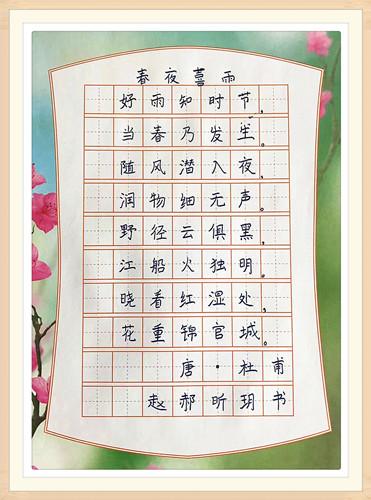 春夜喜雨
好雨知时节，
当春乃发生。
随风潜入夜，
润物细无声。
野径云俱黑，
江船火独明。
晓看红湿处，
花重锦官城。
唐·杜甫
赵郝昕玥书